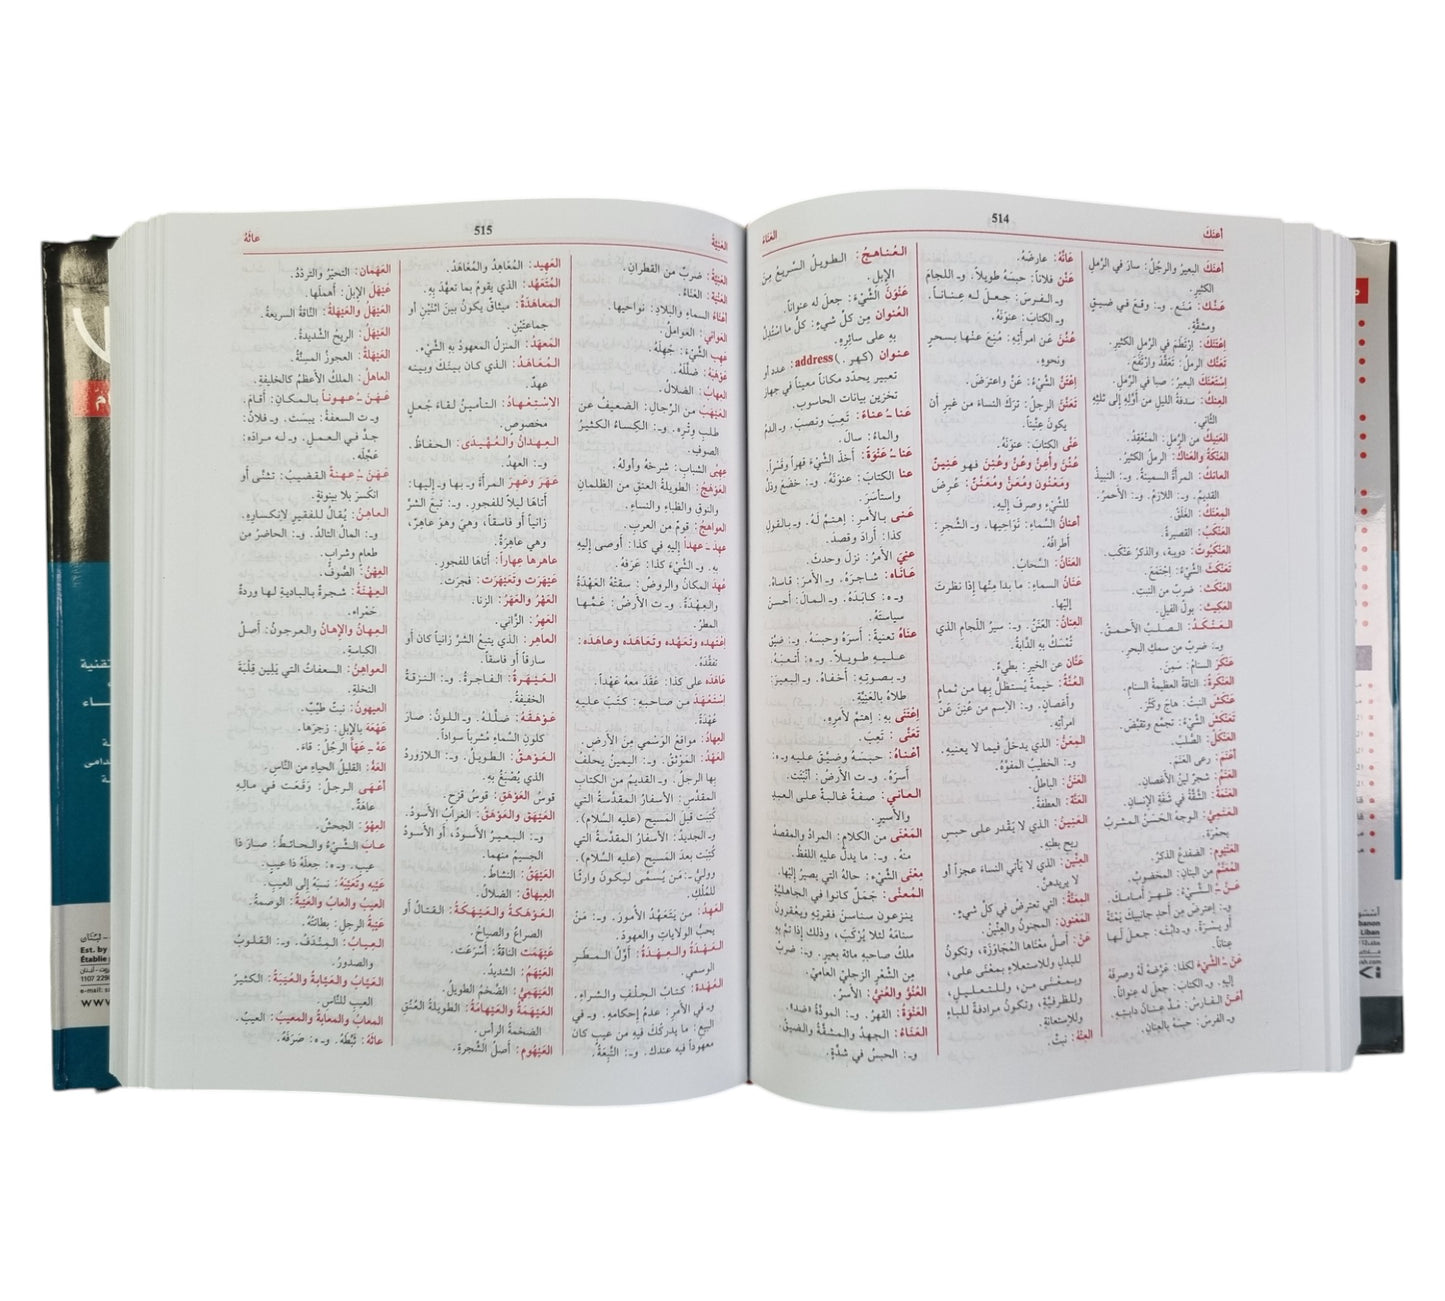 514
أعنَكَ
العَناءُ
أعنَكَ البعيرُ والرجُلُ: سارَ في الرَّملِ
الكثيرِ.
عَنْكَ: مَنَع. وـ: وقعَ في ضيقٍ
ومشقَّةٍ.
اِعْتَنَكَ: اِرتَطَمَ في الرَّملِ الكثيرِ.
تَعَنَّكَ الرملُ: تَعَقَّدَ وارْتَفَعَ.
اِسْتَعْنَكَ البعيرُ: صبا في الرَّملِ.
العِنكُ: سَدَفةُ الليلِ من أوَّلِهِ إلى ثلثِهِ
الثَّاني.
العَنيكُ من الرَّملِ: المنْعَقِدُ.
العَنكَةُ والعَناكُ: الرملُ الكثيرُ.
العانكُ: المرأةُ السمينةُ. وـ: النبيذُ
القديمُ. وـ: اللازِمُ. وـ: الأحمرُ.
المِعْنَكُ: الغَلَقُ.
العَنْكَبُ: القصيرةُ.
العَنكبوتُ: دويبة، والذكَرُ عَنْكَب.
تَعَنْكَثَ الشَّيْءُ: اِجتَمَعَ.
العَنكَثُ: ضربٌ من النبتِ.
الصـلـبُ الأحمـقُ.
وـ: ضربٌ من سمكِ البحرِ.
عَنْكَرَ السنامُ: سَمِنَ.
العَنكرةُ: الناقةُ العظيمةُ السنامِ.
عَنْكَشَ النبتُ: هاجَ وكَثُرَ.
تَعَنْكَشَ الشَّيْءُ: تجمَّع وتقبَّضَ.
العَنْكَلُ: الصُّلبُ.
أعْنَمَ: رعى العَنَمَ.
العَنَمُ: شجرٌ ليّنُ الأغصانِ.
العَنَمةُ: الشَّقَّةُ في شَفَةِ الإنسانِ.
العَنَمِيُّ: الوجهُ الحَسَنُ المشربُ
بحمْرَة.
العُنْيُوم: الضفدعُ الذكَرُ.
المُعَنَّمُ من البنانِ: المخضوبُ.
عَـنَّ ـُ الشَّيْءُ: ظهـرَ أمامـك.
وـ: اِعترَضَ مِن أحدِ جانبيكَ يَمْنَةً
أو يَسْرَةً. وـ دابتَه: جعلَ لـها
عِناناً.
عَنَّ ـُ الشَّيْءَ لكذا: عَرَّضَهُ لهُ وصرفَهُ
إليهِ. وـ الكتابَ: جعل له عنواناً.
أعَنَّ الفارسُ: مَدَّ عِنانَ دابتِهِ.
وـ الفرسَ: حبسَهُ بالعِنانِ.
عَانَّهُ: عارضَهُ.
عَنَّنَ فلاناً: حبسَهُ طويلاً. وـ اللجامَ
وـ الفـرسَ: جـعـلَ لـه عِـنـانـاً.
وـ الكتابَ: عنوَنَهُ.
عُنِّنَ عَن امرأتِهِ: مُنِعَ عنْها بسحرٍ
ونحوِهِ.
اِعْتَنَّ الشَّيْءُ: عَنَّ واعترَضَ.
تَعَنَّنَ الرجلُ: تَرَكَ النساءَ من غيرِ أن
يكونَ عِنِّيناً.
عَنَّى الكتابَ: عنوَنَهُ.
عُنَّ وأُعِنَّ وعُنَّ وعُنِّنَ فهو عَنِينٌ
ومَعْنون ومُعَنٌّ ومُعَنَّنٌ: عُرِضَ
للشَّيْءِ وصرفَ إليهِ.
أعنانُ السَّماءِ: نَوَاحِيها. وـ الشجرِ:
أطرافُهُ.
العَنَانُ: السَّحابُ.
عَنَانُ السماءِ: ما بدا مِنْها إذا نظرتَ
إليْها.
العِنانُ: العَنَنُ. وـ: سيرُ اللِّجامِ الذي
تُمْسَكُ بِهِ الدَّابةُ.
عَنَّان عن الخيرِ: بطيءٌ.
العُنَّةُ: خيمةٌ يُستظلُّ بِها من ثمامٍ
وأغصانٍ. وـ: الاسم من عُنِّنَ عَنْ
امرأتِهِ.
المِعَنُّ: الذي يدخلُ فيما لا يعنيهِ.
وـ: الخطيبُ المفوَّهُ.
العَنَنُ: الباطلُ.
العَنَّةُ: العطفةُ.
العَنِينُ: الذي لا يَقْدر على حبسِ
ريحِ بطنِهِ.
العِنِّين: الذي لا يأتي النساءَ عجزاً أو
لا يريدهنَّ.
المِعَنَّةُ: التي تعترضُ في كلِّ شيءٍ.
المَعْنون: المجنونُ والعِنِّين.
عَنْ: أصل معْناها المُجَاوَزَة، وتكونُ
للبدلِ وللاستعلاءِ بمعْنى على،
وبـمـعْـنـى مـن، ولـلـتـعـلـيـلِ،
وللظرفيَّةِ، وتكونُ مرادفةً للباءِ
وللاستعانةِ.
العِنَّةُ: نبتٌ.
العُناهِجُ: الطويلُ السَّريعُ مِنَ
الإبلِ.
عَنْوَنَ الشَّيْءَ: جعلَ له عنواناً.
العُنوان مِن كلِّ شيءٍ: كلُّ ما اسْتُدِلَّ
بِهِ على سائِرِهِ.
عنوان (كهر. address): عدد أو
تعبير يحدّد مكاناً معيناً في جهاز
تخزين بيانات الحاسوب.
عَنـا ـُ عناءً: تَعِبَ ونَصِبَ. وـ الدمُ
والماءُ: سالَ.
عَنا ـُ عَنْوَةً: أخذَ الشَّيْءَ قهراً وقَسْراً.
عنا الكتابَ: عنوَنَهُ. وـ: خضَعَ وذلَّ
واستأسَرَ.
عَـنى بـالأمـرِ: اِهتـمَّ لَهُ. وـ بـالقولِ
كذا: أرادَ وقصدَ.
عنِيَ الأمرُ: نزلَ وحدثَ.
عَـانَـاه: شاجرَهُ. وـ الأمرَ: قاساهُ.
وـ ه: كـابَـدَهُ. وـ الـمـالَ: أحسنَ
سياستَهُ.
عنَّاهُ تعنيةً: أَسَرَهُ وحبسَهُ. وـ: ضيَّقَ
عـلـيـهِ طـويـلاً. وـ ه: أتـعـبَهُ.
وـ بـصوتِهِ: أخفاهُ. وـ الـبعيرَ:
طلاهُ بالعَنِيَّةِ.
اِعْتَنَى بِهِ: اِهتمَّ لأمرِهِ.
تَعَنَّى: تَعِبَ.
أَعْنـاهُ: حبسَهُ وضيَّقَ عليه وـ ه:
أَسَرَهُ. وـ ت الأرضُ: أنْبَتَت.
العـاني: صفةٌ غالبةٌ على العبدِ
والأسيرِ.
المَعْنَى من الكلامِ: المرادُ والمقصدُ
منهُ. وـ: ما يدلُّ عليهِ اللفظُ.
مِعْنَى الشَّيْءِ: حاله التي يصيرُ إليْها.
المُعنَّى: جَمَلٌ كانوا في الجاهليَّةِ
ينزعون سناسنَ فقرتِهِ ويعْقرونَ
سنامَهُ لئلا يُرْكَبَ، وذلك إذا تمَّ
ملكُ صاحبِهِ مائةَ بعيرٍ. وـ: ضربٌ
من الشِّعرِ الزجليِّ العاميِّ.
العُنُوُّ والعُنِيُّ: الأسرُ.
العَنْوَةُ: القهرُ. وـ: المودَّةُ «ضد».
العَنَاءُ: الجهدُ والمشقَّةُ والضيقُ.
وـ: الحبسُ في شدَّةٍ.
515
العَنِيَّةُ
عانَهُ
العَنِيَّةُ: ضربٌ من القطرانِ.
العُنْيَة: العَناءُ.
أعناءُ السماءِ والبلادِ: نواحيها.
العَواني: العَوامِلُ.
عَهِبَ الشَّيْءَ: جَهِلَهُ.
عَوْهَبَهُ: ضَلَّلَهُ.
العِهابُ: الضلالُ.
العَيْهَبُ من الرِّجالِ: الضعيفُ عن
طلبِ وِتْرِهِ. وـ: الكِساءُ الكثيرُ
الصوفِ.
عِهِبَّى الشبابِ: شرخهُ وأولهُ.
العَوْهَجُ: الطويلةُ العنقِ من الظلمانِ
والنوقِ والظباءِ والنساءِ.
العواهِجُ: قومٌ من العربِ.
عهِدَ ـَ عهداً إليهِ في كذا: أوصى إليهِ
بِهِ. وـ الشَّيْءَ كذا: عَرَفَهُ.
عُهدَ المكانُ والروضُ: سقتْهُ العَهْدَةُ
والعِهْدَةُ. وـ ت الأرضُ: عَمَّها
المطرُ.
اِعْتَهده وتَعَهّده وتَعاهَده وعاهَدَه:
تفقّدَهُ.
عاهَدَه على كذا: عَقَدَ معهُ عَهْداً.
اِسْتَعْهَدَ من صاحبِهِ: كتبَ عليهِ
عُهْدَةً.
العِهادُ: مواقعُ الوَسْمي مِنَ الأرضِ.
العَهْدُ: المَوْثِقُ. وـ: اليمينُ يحلفُ
بِها الرجلُ. وـ القديم من الكتابِ
المقدَّسِ: الأسفارُ المقدَّسةُ التي
كُتِبَت قبلَ المَسيحِ (عليه السَّلام).
وـ الجديد: الأسفارُ المقدَّسةُ التي
كُتِبَت بعدَ المَسيحِ (عليه السَّلام).
ووليُّ ـ: مَن يُسمَّى ليكونَ وارثًا
للمُلكِ.
العَهِدُ: من يَتَعَهَّدُ الأمورَ. وـ: مَنْ
يحبُّ الولاياتِ والعهودَ.
العَـهْـدَةُ والعِـهْـدَةُ: أوَّلُ الـمـطـرِ
الوسمي.
العُهْدَةُ: كتابُ الحِلْفِ والشراءِ.
وـ في الأمرِ: عدمُ إحكامِهِ. وـ في
البيعِ: ما يدركُكَ فيه من عيبٍ كان
معهوداً فيه عندك. وـ: التَّبِعَةُ.
العَهيد: المُعَاهِدُ والمُعَاهَدُ.
المُتَعَهِّد: الذي يقومُ بما تعهَّدَ بِهِ.
المَعاهَدَةُ: ميثاقٌ يكونُ بينَ اثنَيْنِ أو
جماعتَيْنِ.
المَعهَدُ: المنزلُ المعهودُ بهِ الشَّيْءُ.
المُـعَـاهَـدُ: الذي كان بينَكَ وبينَه
عهدٌ.
الاسْتِعْهـادُ: التأمينُ لقاءَ جُعلٍ
مخصوصٍ.
العِهدانُ والعُهَّيْدَى: الحفاظُ.
وـ: العهدُ.
عَهَرَ وعَهِرَ المرأةَ وـ بها وـ إليها:
أتاها ليلاً للفجورِ. وـ: تبعَ الشرَّ
زانياً أو فاسقاً، وهيَ وهو عاهرٌ،
وهي عاهِرَةٌ.
عاهرها عِهاراً: أتاها للفجورِ.
عَيْهَرَت وتَعَيْهَرَت: فجرَت.
العَهْرُ والعَهَرُ: الزنا.
العَهِرُ: الزَّاني.
العاهِر: الذي يتبعُ الشرَّ زانياً كان أو
سارقاً أو فاسقاً.
العَـيْهـرَةُ: الفاجـرةُ. وـ: النـزقـةُ
الخفيفةُ.
عَـوْهـقَـهُ: ضـلَّلَـهُ. وـ الـلـونُ: صـارَ
كلونِ السَّماءِ مُشْرَباً سواداً.
العَوْهَقُ: الطويلُ. وـ: اللازوردُ
الذي يُصْبَغُ بِهِ.
قوسُ العَوْهَقِ: قوسُ قزح.
العَيْهَق والعَوْهَقُ: الغرابُ الأسودُ.
وـ: البـعيرُ الأسـودُ، أو الأسودُ
الجسيمُ منهما.
العَيْهَقُ: النشاطُ.
العِيهاق: الضلالُ.
العَوْهَكـةُ والعَيْهَكَةُ: القتالُ أو
الصراعُ والصياحُ.
عَيْهَمَت الناقةُ: أسْرَعَت.
العَيْهَمُ: الشديدُ.
العَيْهَمِيُّ: الضَّخمُ الطويلُ.
العَيْهَمَةُ والعَيْهَامَةُ: الطويلةُ العُنُقِ
الضخمةُ الرأسِ.
العَيْهُوم: أصلُ الشَّجرةِ.
العَهَمَان: التحيّرُ والتردّدُ.
عَيْهَلَ الإبلَ: أهمَلَها.
العَيْهَلُ والعَيْهَلَةُ: النَّاقةُ السريعةُ.
العَيْهَلُ: الريحُ الشَّديدةُ.
العَيْهَلَةُ: العجوزُ المسنَّةُ.
العاهلُ: الملكُ الأعظمُ كالخليفةِ.
عَـهَـنَ ـُ عـهـونـاً بـالمـكـانِ: أقـامَ.
وـ ت السعفةُ: يبسَتْ. وـ فـلانٌ:
جـدَّ فـي الـعـمـلِ. وـ لـه مـرادَه:
عَجَّلَه.
عَـهَـنَ ـِ عِـهنـةً القضيبُ: تَثنَّى أو
انكسرَ بلا بينونةٍ.
العاهِنُ: يُقالُ للفقيرِ لانكسارِهِ.
وـ: المالُ التالدُ. وـ: الحاضرُ من
طعامٍ وشرابٍ.
العِهْنُ: الصُّوفُ.
العِـهْنَةُ: شجرةٌ بالباديةِ لـها وردةٌ
حَمْراء.
العِهانُ والإهانُ والعرجونُ: أصلُ
الكِباسةِ.
العواهِنُ: السعفاتُ التي يَلِينَ قِلْبَةَ
النخلةِ.
العيهونُ: نبتٌ طيّبٌ.
عَهْعَهَ بالإبلِ: زجرَها.
عَهَّ ـِ عَهًّا الرجُلُ: قاءَ.
العَهُّ: القليلُ الحياءِ من النَّاسِ.
أعْـهـى الرجلُ: وَقَعَت في مالِهِ
عاهةٌ.
العِهْوُ: الجحشُ.
عـابَ الشَّيْءُ والحـائـطُ: صـارَ ذا
عيبٍ. وـ ه: جعلَهُ ذا عيبٍ.
عَيَّبه وتَعَيَّبَهُ: نسبَهُ إلى العيبِ.
العيبُ والعابُ والعَيْبَةُ: الوصمةُ.
عَيْبَةُ الرجلِ: بطانتُهُ.
العِيـابُ: المِنْدَفُ. وـ: القـلوبُ
والصدورُ.
العَيَّابُ والعَيَّابةُ والعُيَبَةُ: الكثيرُ
العيبِ للنَّاسِ.
المَعابُ والمَعابةُ والمَعيبُ: العيبُ.
عانَهُ: ثَبَّطَهُ. وـ ه: صَرَفَهُ.
Est. by
Établie
1107 229
e-mail: s
www
banon
Liban